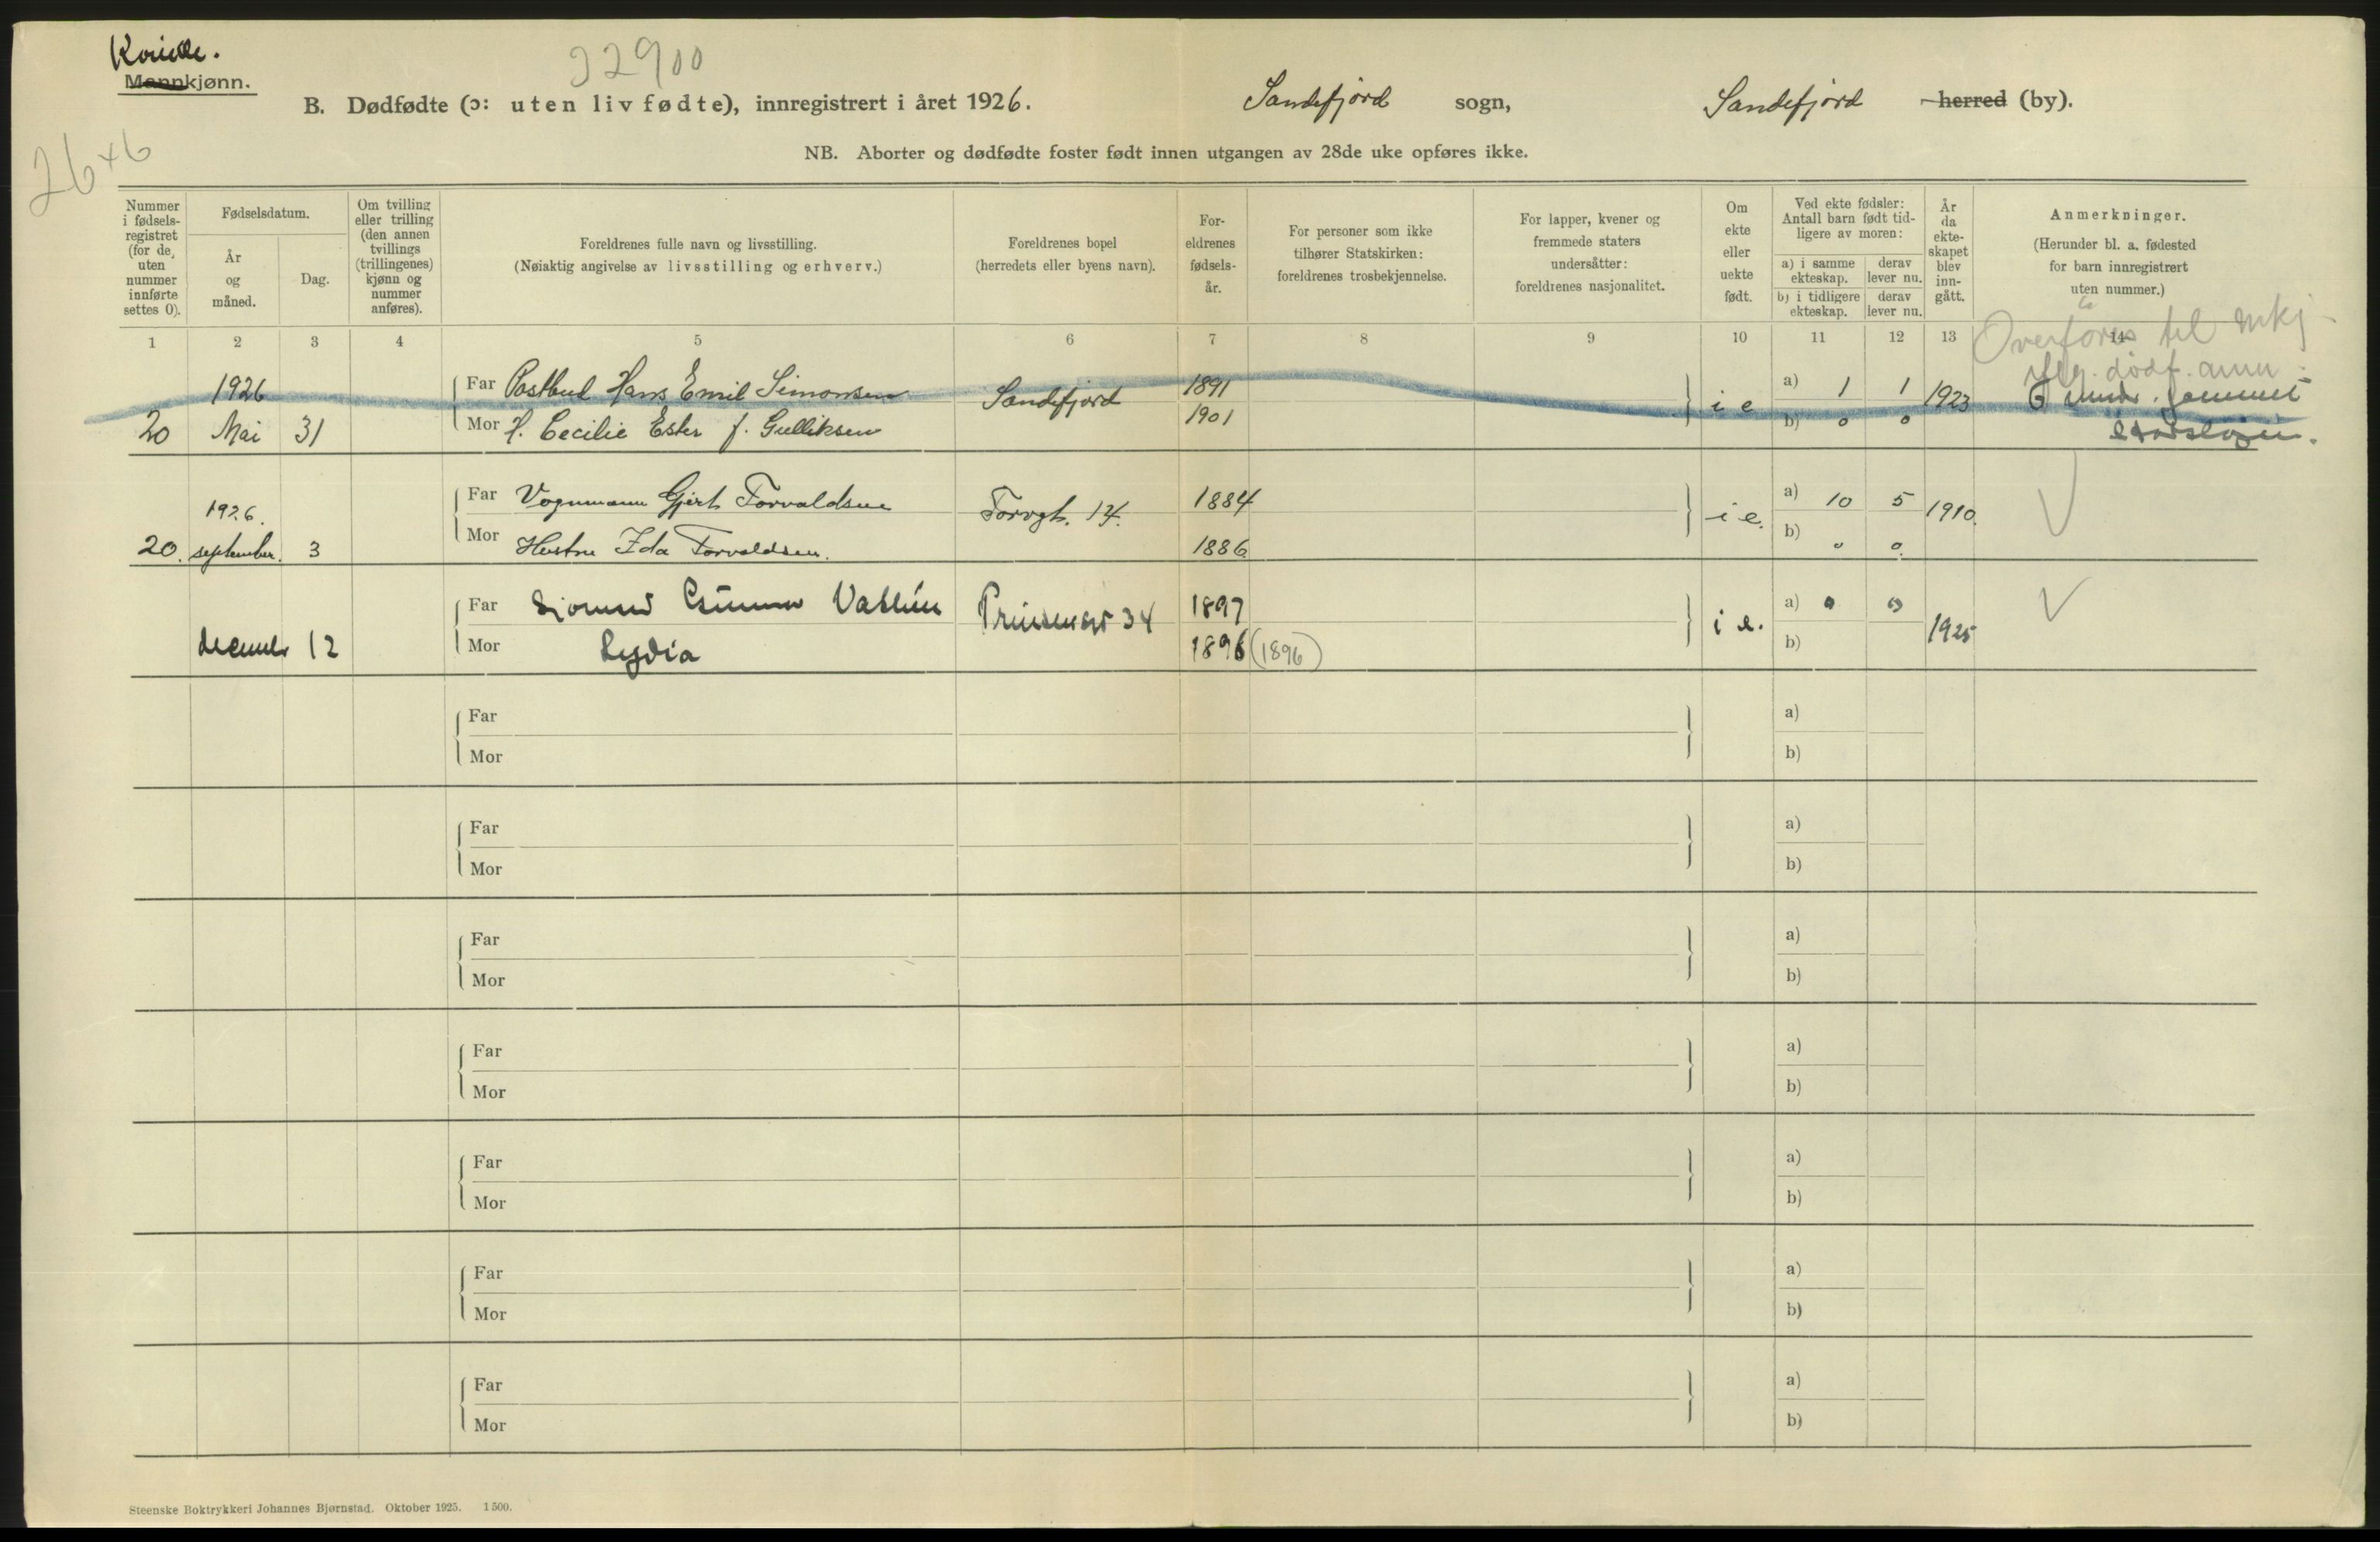 Kvinde.
Mannkjønn.
22900
B. Dødfødte (ɔ: uten liv fødte), innregistrert i året 1926.
Sandefjord sogn,
Sandefjord herred (by).
26+6
NB. Aborter og dødfødte foster født innen utgangen av 28de uke opføres ikke.
Nummer i fødsels-registret (for de uten nummer innførte settes 0).
Fødselsdatum.
År og måned.
Dag.
Om tvilling eller trilling (den annen tvillings (trillingenes) kjønn og nummer anføres).
Foreldrenes fulle navn og livsstilling.
(Nøiaktig angivelse av livsstilling og erhverv.)
Foreldrenes bopel
(herredets eller byens navn).
For-eldrenes fødsels-år.
For personer som ikke tilhører Statskirken: foreldrenes trosbekjennelse.
For lapper, kvener og fremmede staters undersåtter: foreldrenes nasjonalitet.
Om ekte eller uekte født.
Ved ekte fødsler: Antall barn født tid-ligere av moren:
a) i samme ekteskap.
derav lever nu.
b) i tidligere ekteskap.
derav lever nu.
År da ekte-skapet blev inn-gått.
Anmerkninger.
(Herunder bl. a. fødested for barn innregistrert uten nummer.)
1 2 3 4 5 6 7 8 9 10 11 12 13 14
Overføres til mkj
dødf. anm.
1926
20 Mai 31
Far Postbud Hans Emil Simonsen Sandefjord 1891
Mor H. Cecilie Ester f. Gulliksen 1901
i e a) 1 1 1923
b) 0 0
1926.
20. september. 3
Far Vognmann Gjert Torvaldsen Torvgt. 14. 1884
Mor Hustru Ida Torvaldsen. 1886
i e. a) 10 5 1910.
b) 0 0.
december 12
Far Sjømand Gunnar Vatlin Prinsensgt 34 1897
Mor Lydia 1896 (1896)
i e. a) 0 0 1925
b)
Far
Mor
a)
b)
Far
Mor
a)
b)
Far
Mor
a)
b)
Far
Mor
a)
b)
Far
Mor
a)
b)
Far
Mor
a)
b)
Far
Mor
a)
b)
Steenske Boktrykkeri Johannes Bjørnstad. Oktober 1925. 1500.